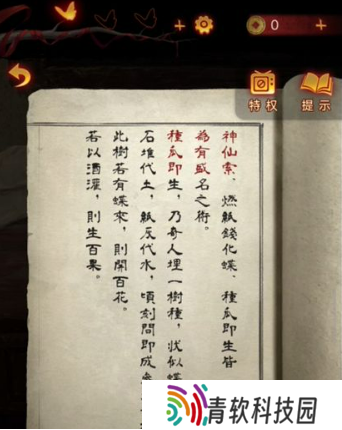 0
特权
提示
神仙索、燃紙錢化蝶、種瓜即生皆
為有盛名之術。
種瓜即生，乃奇人埋一樹種，狀似蝶
石堆代土，紙灰代水，頃刻間即成參
此樹若有蝶來，則開百花。
若以酒漑，則生百果。
青软科技园